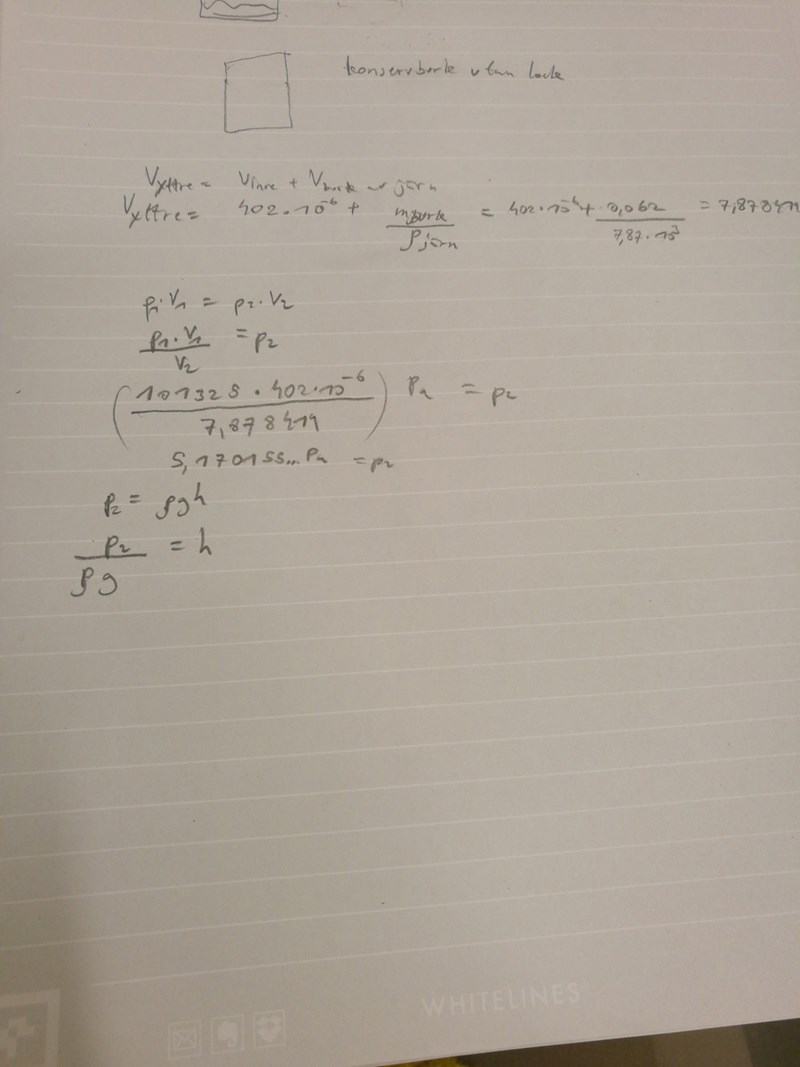 konservburk utan lock
Vyttre = Vinre + Vburk av järn
Vyttre = 402·10⁻⁶ + mburk/ρjärn = 402·10⁻⁶ + 0,062/7,87·10³ = 7,878419
p₁·V₁ = p₂·V₂
p₁·V₁/V₂ = p₂
(101325·402·10⁻⁶/7,878419) Pa = p₂
5,170155... Pa = p₂
p₂ = ρgh
p₂/ρg = h
WHITELINES